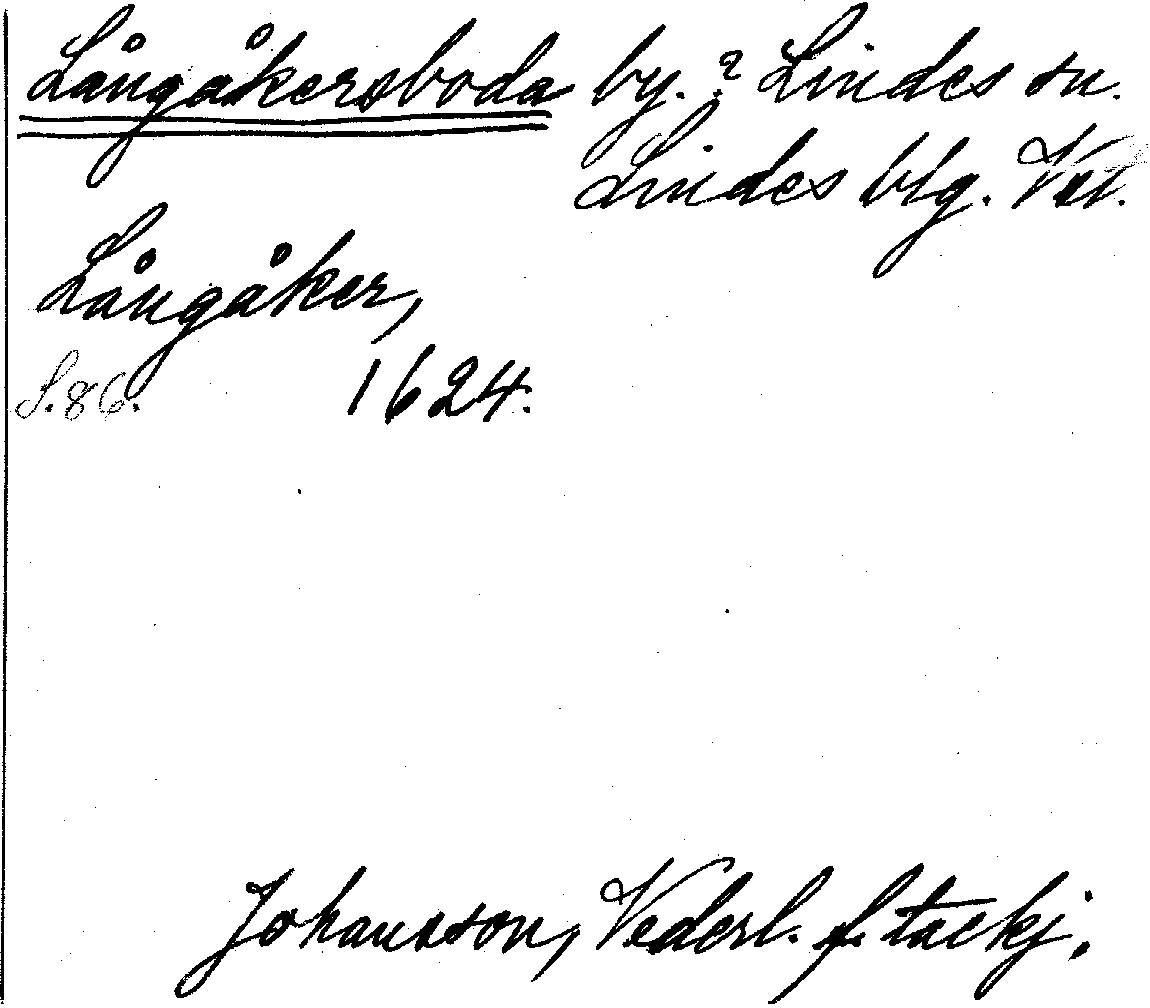 Långåkersboda by.? Lindes sn.
Lindes blg. Vstl.
Långåker,
S.86. 1624.
Johansson, Vederl. f. tackj.